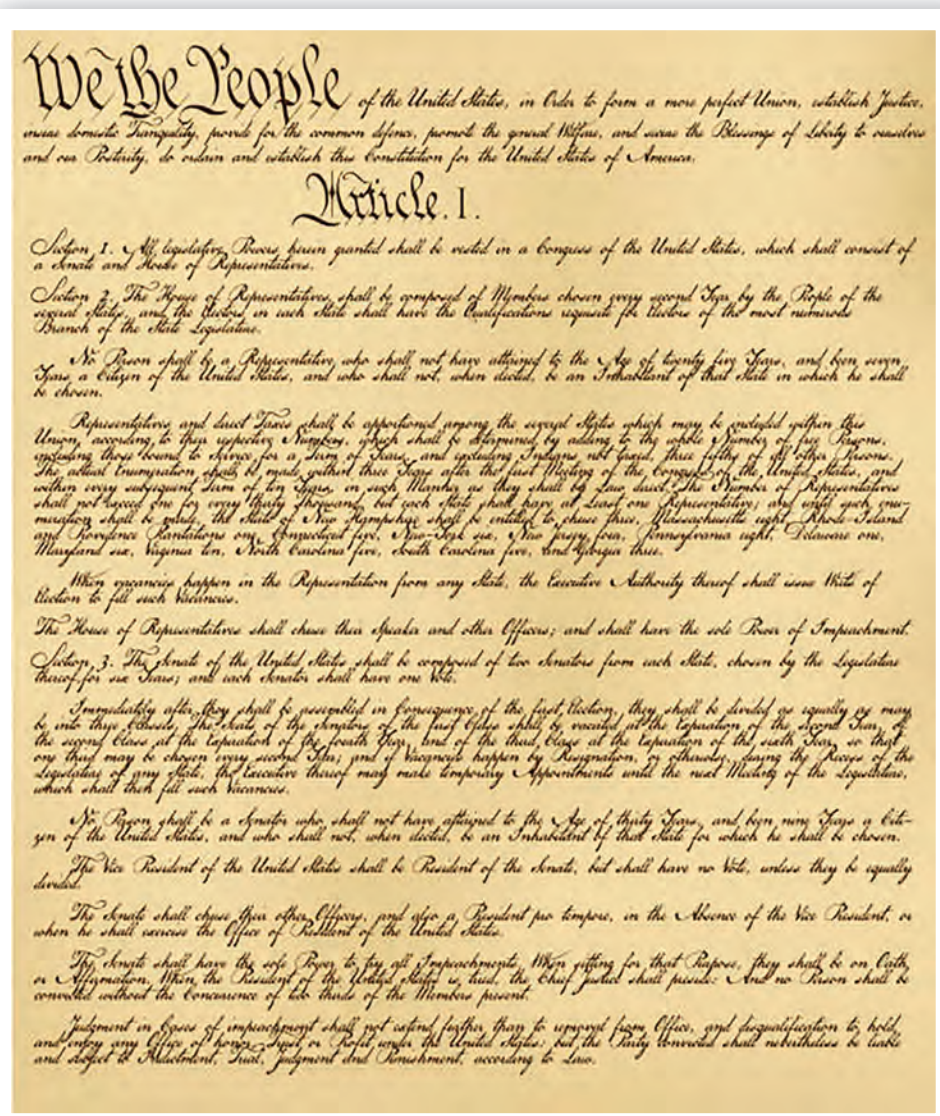 We the People of the United States, in Order to form a more perfect Union, establish Justice,
insure domestic Tranquility, provide for the common defence, promote the general Welfare, and secure the Blessings of Liberty to ourselves
and our Posterity, do ordain and establish this Constitution for the United States of America.
Article. I.
Section 1. All legislative Powers herein granted shall be vested in a Congress of the United States, which shall consist of
a Senate and House of Representatives.
Section 2. The House of Representatives shall be composed of Members chosen every second Year by the People of the
several States, and the Electors in each State shall have the Qualifications requisite for Electors of the most numerous
Branch of the State Legislature.
No Person shall be a Representative who shall not have attained to the Age of twenty five Years, and been seven
Years a Citizen of the United States, and who shall not, when elected, be an Inhabitant of that State in which he shall
be chosen.
Representatives and direct Taxes shall be apportioned among the several States which may be included within this
Union, according to their respective Numbers, which shall be determined by adding to the whole Number of free Persons,
including those bound to Service for a Term of Years, and excluding Indians not taxed, three fifths of all other Persons.
The actual Enumeration shall be made within three Years after the first Meeting of the Congress of the United States, and
within every subsequent Term of ten Years, in such Manner as they shall by Law direct. The Number of Representatives
shall not exceed one for every thirty Thousand, but each State shall have at Least one Representative; and until such enu-
meration shall be made, the State of New Hampshire shall be entitled to chuse three, Massachusetts eight, Rhode-Island
and Providence Plantations one, Connecticut five, New-York six, New Jersey four, Pennsylvania eight, Delaware one,
Maryland six, Virginia ten, North Carolina five, South Carolina five, and Georgia three.
When vacancies happen in the Representation from any State, the Executive Authority thereof shall issue Writs of
Election to fill such Vacancies.
The House of Representatives shall chuse their Speaker and other Officers; and shall have the sole Power of Impeachment.
Section 3. The Senate of the United States shall be composed of two Senators from each State, chosen by the Legislature
thereof for six Years; and each Senator shall have one Vote.
Immediately after they shall be assembled in Consequence of the first Election, they shall be divided as equally as may
be into three Classes. The Seats of the Senators of the first Class shall be vacated at the Expiration of the second Year, of
the second Class at the Expiration of the fourth Year, and of the third Class at the Expiration of the sixth Year, so that
one third may be chosen every second Year; and if Vacancies happen by Resignation, or otherwise, during the Recess of the
Legislature of any State, the Executive thereof may make temporary Appointments until the next Meeting of the Legislature,
which shall then fill such Vacancies.
No Person shall be a Senator who shall not have attained to the Age of thirty Years, and been nine Years a Citi-
zen of the United States, and who shall not, when elected, be an Inhabitant of that State for which he shall be chosen.
The Vice President of the United States shall be President of the Senate, but shall have no Vote, unless they be equally
divided.
The Senate shall chuse their other Officers, and also a President pro tempore, in the Absence of the Vice President, or
when he shall exercise the Office of President of the United States.
The Senate shall have the sole Power to try all Impeachments. When sitting for that Purpose, they shall be on Oath
or Affirmation. When the President of the United States is tried, the Chief Justice shall preside: And no Person shall be
convicted without the Concurrence of two thirds of the Members present.
Judgment in Cases of impeachment shall not extend further than to removal from Office, and disqualification to hold
and enjoy any Office of honor, Trust or Profit under the United States: but the Party convicted shall nevertheless be liable
and subject to Indictment, Trial, Judgment and Punishment, according to Law.